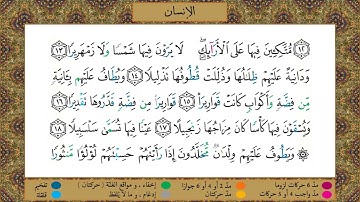 الإنسان
١٢ مُّتَّكِـِٔينَ فِيهَا عَلَى ٱلْأَرَآئِكِ ۖ لَا يَرَوْنَ فِيهَا شَمْسًا وَلَا زَمْهَرِيرًا ١٣
وَدَانِيَةً عَلَيْهِمْ ظِلَٰلُهَا وَذُلِّلَتْ قُطُوفُهَا تَذْلِيلًا ١٤ وَيُطَافُ عَلَيْهِم بِـَٔانِيَةٍ
مِّن فِضَّةٍ وَأَكْوَابٍ كَانَتْ قَوَارِيرَا۠ ١٥ قَوَارِيرَا۟ مِن فِضَّةٍ قَدَّرُوهَا تَقْدِيرًا ١٦
وَيُسْقَوْنَ فِيهَا كَأْسًا كَانَ مِزَاجُهَا زَنجَبِيلًا ١٧ عَيْنًا فِيهَا تُسَمَّىٰ سَلْسَبِيلًا ١٨
۞ وَيَطُوفُ عَلَيْهِمْ وِلْدَٰنٌ مُّخَلَّدُونَ إِذَا رَأَيْتَهُمْ حَسِبْتَهُمْ لُؤْلُؤًا مَّنثُورًا
مدّ ٦ حركات لزوما مدّ ٢ أو ٤ أو ٦ جوازا إخفاء، ومواقع الغُنّة (حركتان) تفخيم
مدّ واجب ٤ أو ٥ حركات مدّ حركتان إدغام، وما لا يُلفظ قلقلة